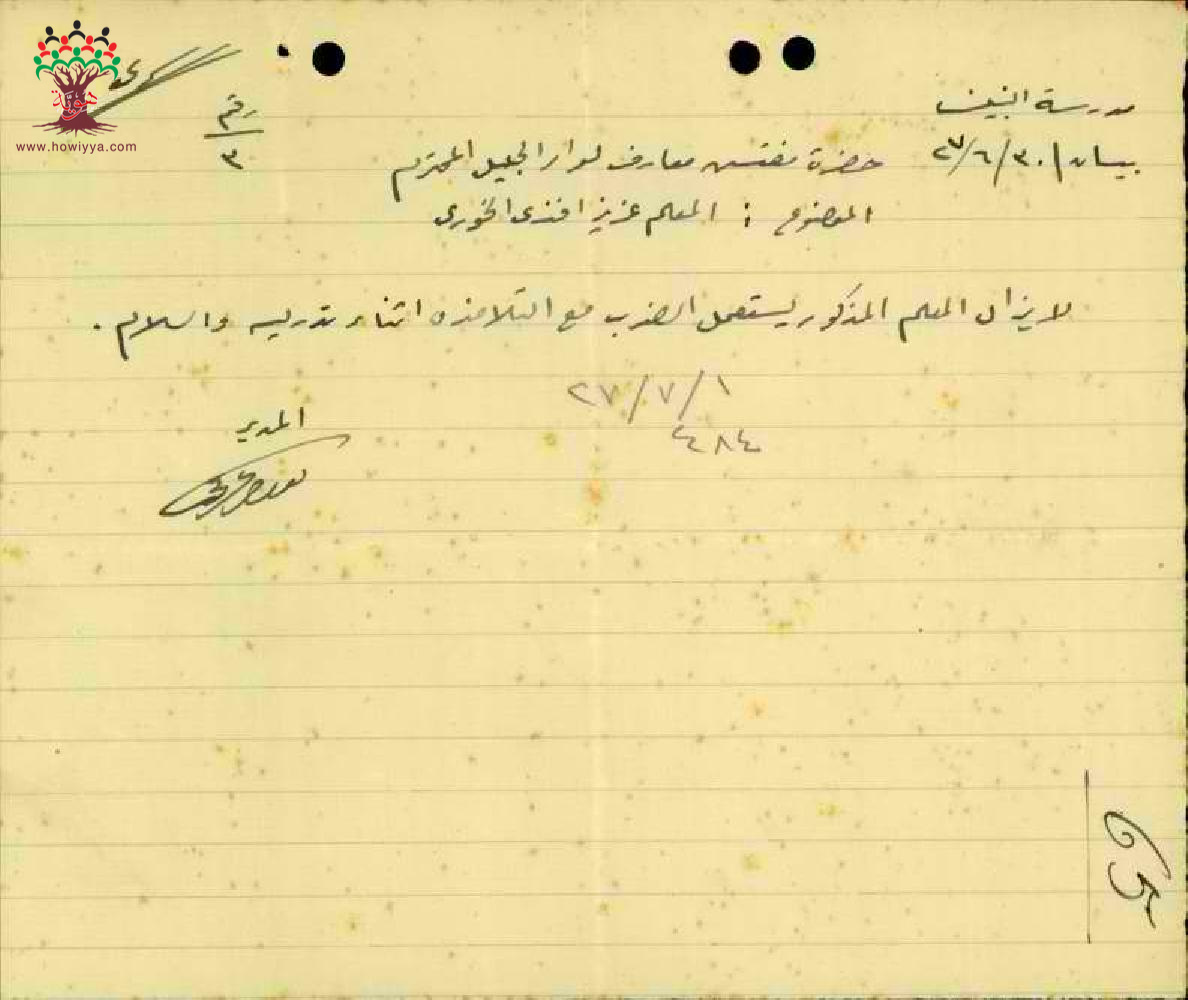 سري
هوية
www.howiyya.com
مدرسة البنين
رقم
٣
بيسان ٣٠/٦/٢٧
حضرة مفتش معارف لواء الجليل المحترم
الموضوع : المعلم عزيز افندي الخوري
لا يزال المعلم المذكور يستعمل الضرب مع التلامذه اثناء تدريسه والسلام .
٢٧/٧/١
٤٨٤
المدير
65